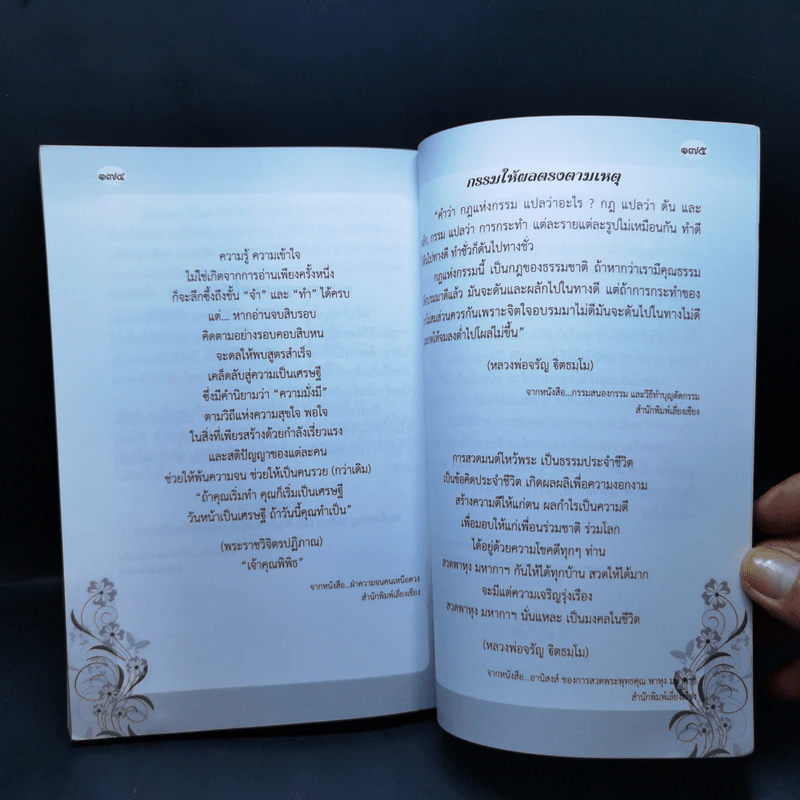 ๑๗๔
ความรู้ ความเข้าใจ
ไม่ใช่เกิดจากการอ่านเพียงครั้งหนึ่ง
ก็จะลึกซึ้งถึงขั้น “จำ” และ “ทำ” ได้ครบ
แต่... หากอ่านจบสิบรอบ
คิดตามอย่างรอบคอบสิบหน
จะดลให้พบสูตรสำเร็จ
เคล็ดลับสู่ความเป็นเศรษฐี
ซึ่งมีคำนิยามว่า “ความมั่งมี”
ตามวิถีแห่งความสุขใจ พอใจ
ในสิ่งที่เพียรสร้างด้วยกำลังเรี่ยวแรง
และสติปัญญาของแต่ละคน
ช่วยให้พ้นความจน ช่วยให้เป็นคนรวย (กว่าเดิม)
“ถ้าคุณเริ่มทำ คุณก็เริ่มเป็นเศรษฐี
วันหน้าเป็นเศรษฐี ถ้าวันนี้คุณทำเป็น”
(พระราชวิจิตรปฏิภาณ)
“เจ้าคุณพิพิธ”
จากหนังสือ...ฝ่าความจนคนเหนือดวง
สำนักพิมพ์เลี่ยงเชียง
๑๗๕
กรรมให้ผลตรงตามเหตุ
“คำว่า กฎแห่งกรรม แปลว่าอะไร ? กฎ แปลว่า ดัน และ
กรรม แปลว่า การกระทำ แต่ละรายแต่ละรูปไม่เหมือนกัน ทำดี
ไปทางดี ทำชั่วก็ดันไปทางชั่ว
กฎแห่งกรรมนี้ เป็นกฎของธรรมชาติ ถ้าหากว่าเรามีคุณธรรม
มาดีแล้ว มันจะดันและผลักไปในทางดี แต่ถ้าการกระทำของ
ส่วนควรกันเพราะจิตใจอบรมมาไม่ดีมันจะดันไปในทางไม่ดี
ให้จมลงต่ำไปโผล่ไม่ขึ้น”
(หลวงพ่อจรัญ ฐิตธมฺโม)
จากหนังสือ...กรรมสนองกรรม และวิธีทำบุญตัดกรรม
สำนักพิมพ์เลี่ยงเชียง
การสวดมนต์ไหว้พระ เป็นธรรมประจำชีวิต
เป็นข้อคิดประจำชีวิต เกิดผลผลิเพื่อความงอกงาม
สร้างความดีให้แก่ตน ผลกำไรเป็นความดี
เพื่อมอบให้แก่เพื่อนร่วมชาติ ร่วมโลก
ได้อยู่ด้วยความโชคดีทุกๆ ท่าน
สวดพาหุง มหากาฯ กันให้ได้ทุกบ้าน สวดให้ได้มาก
จะมีแต่ความเจริญรุ่งเรือง
สวดพาหุง มหากาฯ นั่นแหละ เป็นมงคลในชีวิต
(หลวงพ่อจรัญ ฐิตธมฺโม)
จากหนังสือ...อานิสงส์ ของการสวดพระพุทธคุณ พาหุง
สำนักพิมพ์เลี่ยงเชียง